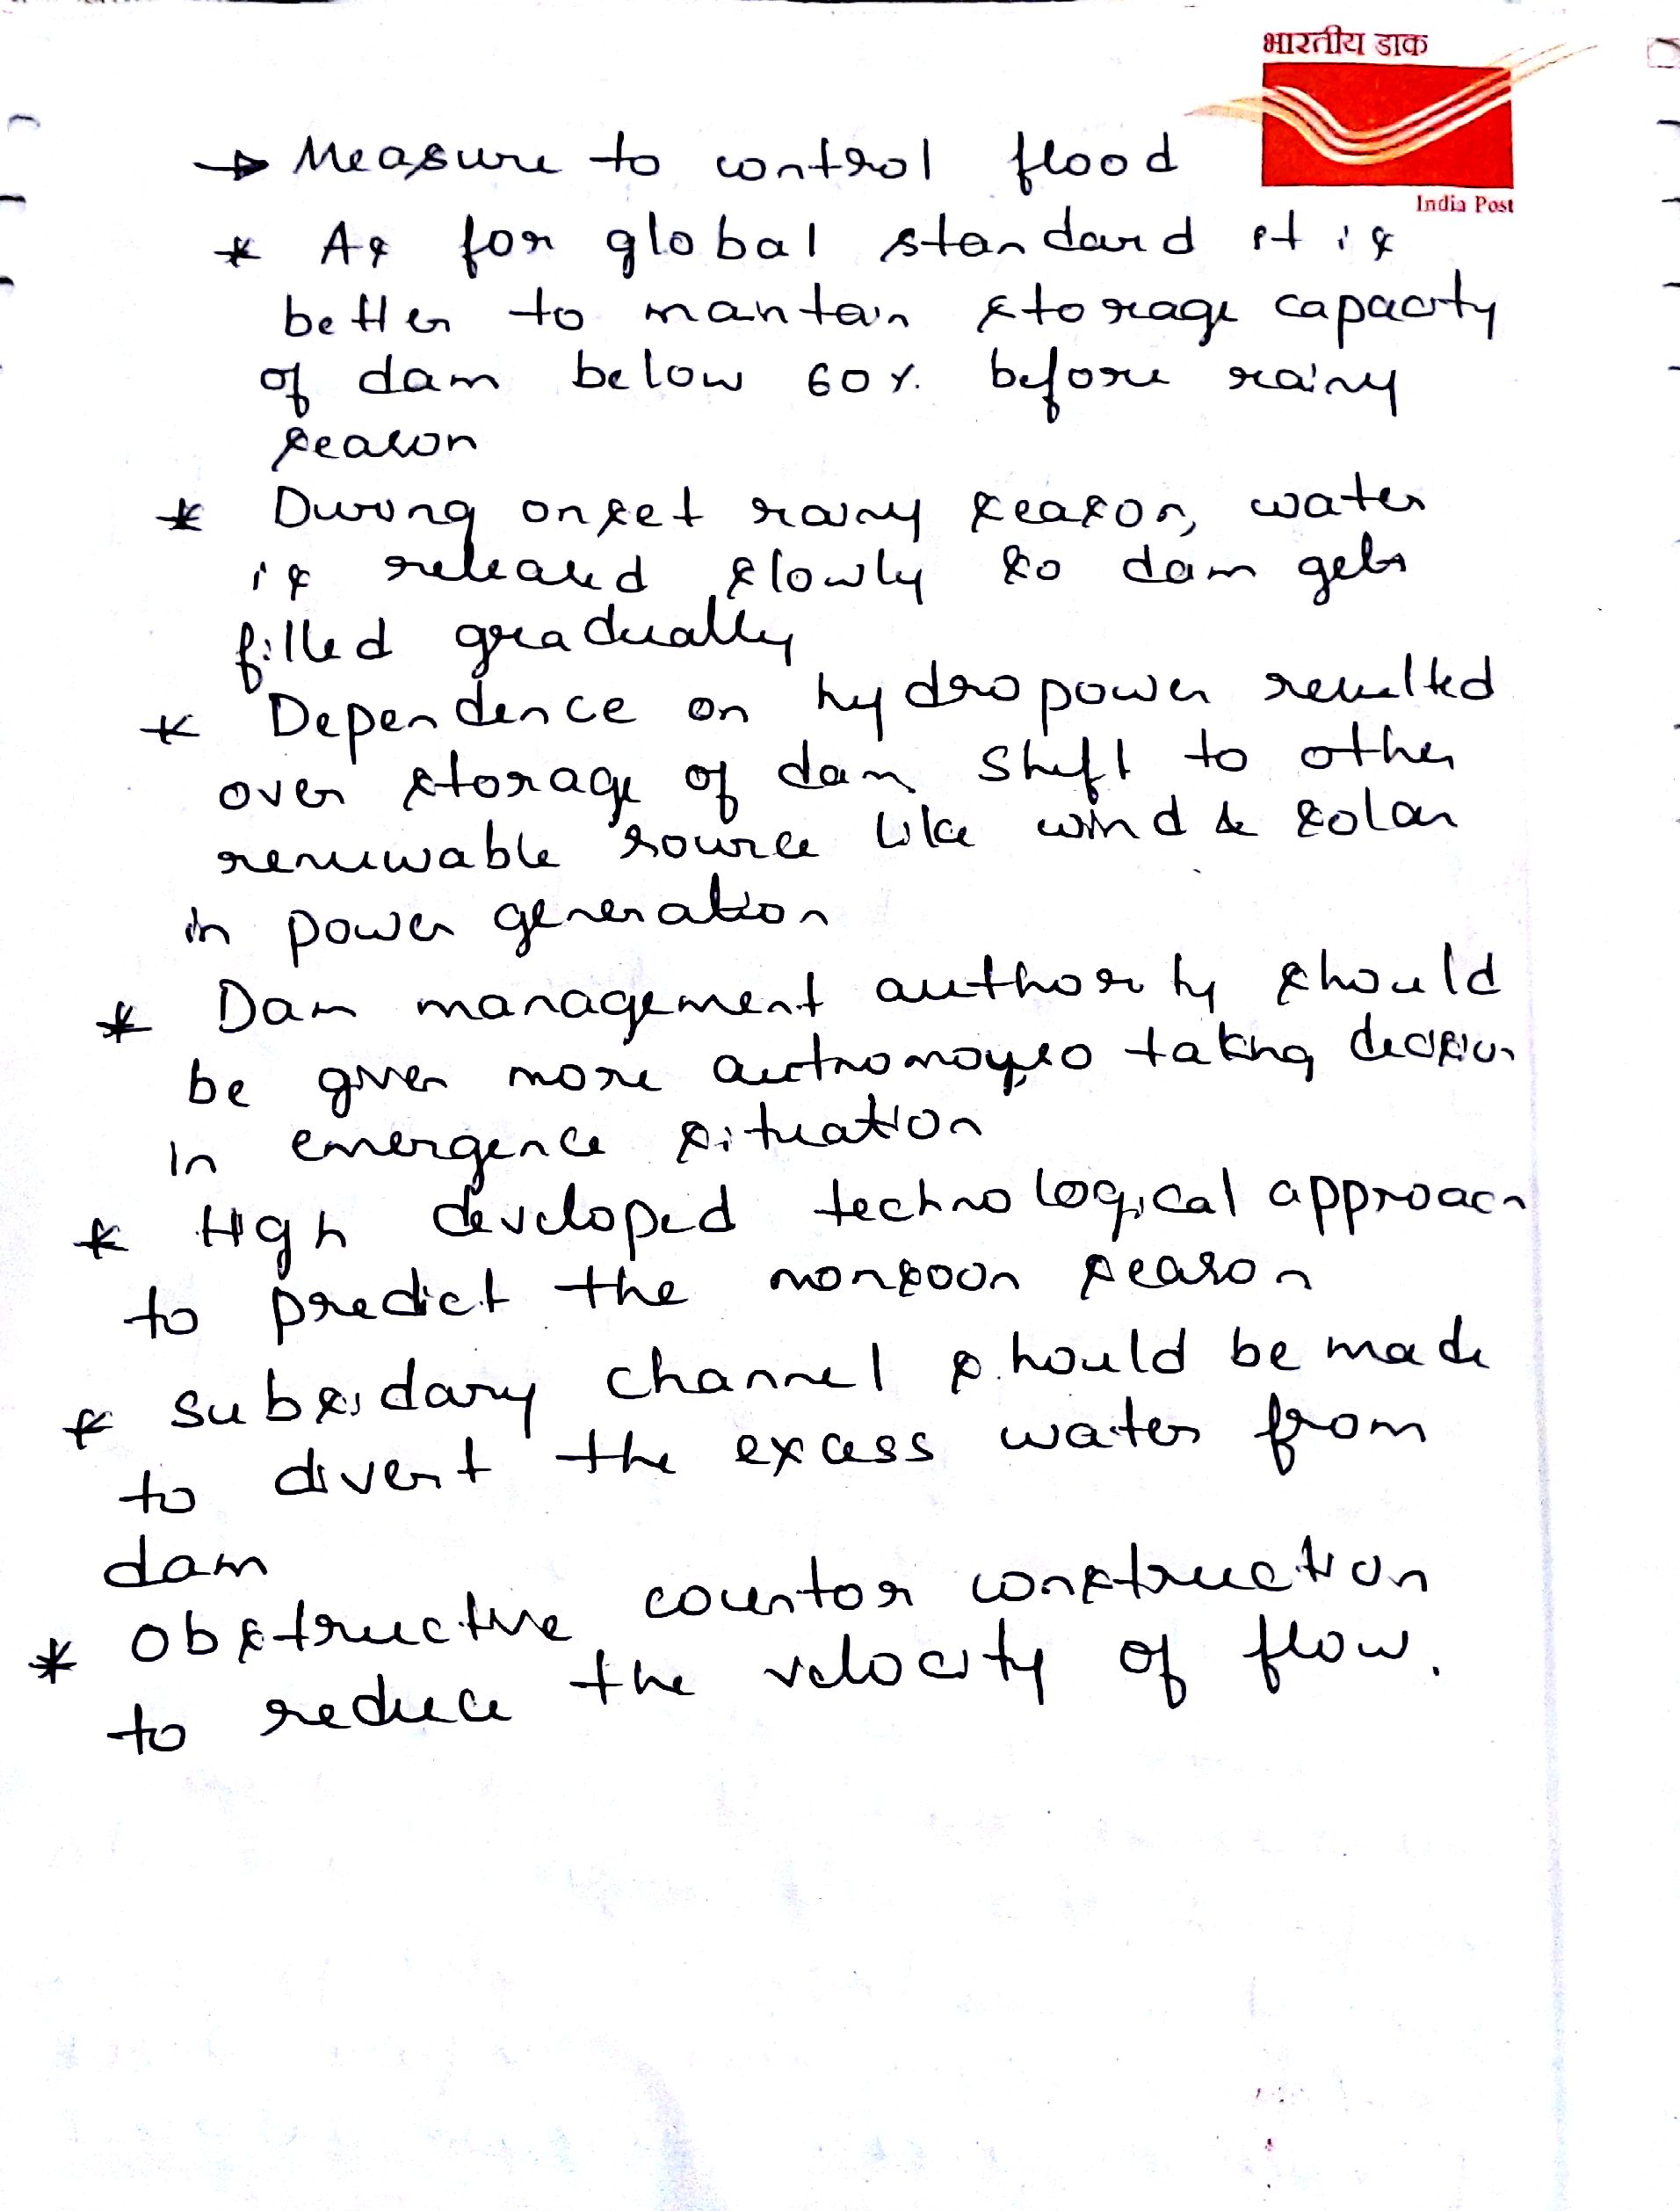 भारतीय डाक
India Post
→ Measure to control flood
* As for global standard it is
better to mantain storage capacity
of dam below 60%. before rainy
season
* During onset rainy season, water
is released slowly so dam gets
filled gradually
* Dependence on hydropower resulted
over storage of dam shift to other
renewable source like wind & solar
in power generation
* Dam management authority should
be given more autnomoy, so taking decision
in emergence situation
* High developed technological approach
to predict the monsoon season
* subsidary channel should be made
to divert the excess water from
dam
* Obstructive countor construction
to reduce the velocity of flow.